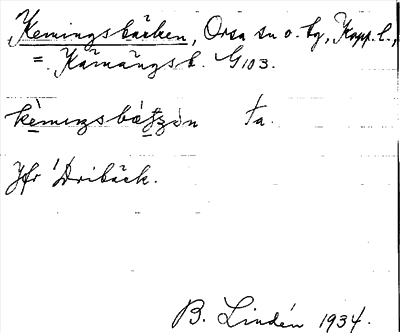 Kemingsbäcken, Orsa sn o. tg, Kopp. l.,
= Kåmångsb. G103.
kèmıŋsbäʦən ta.
Jfr Dribäck.
B. Lindén 1934.